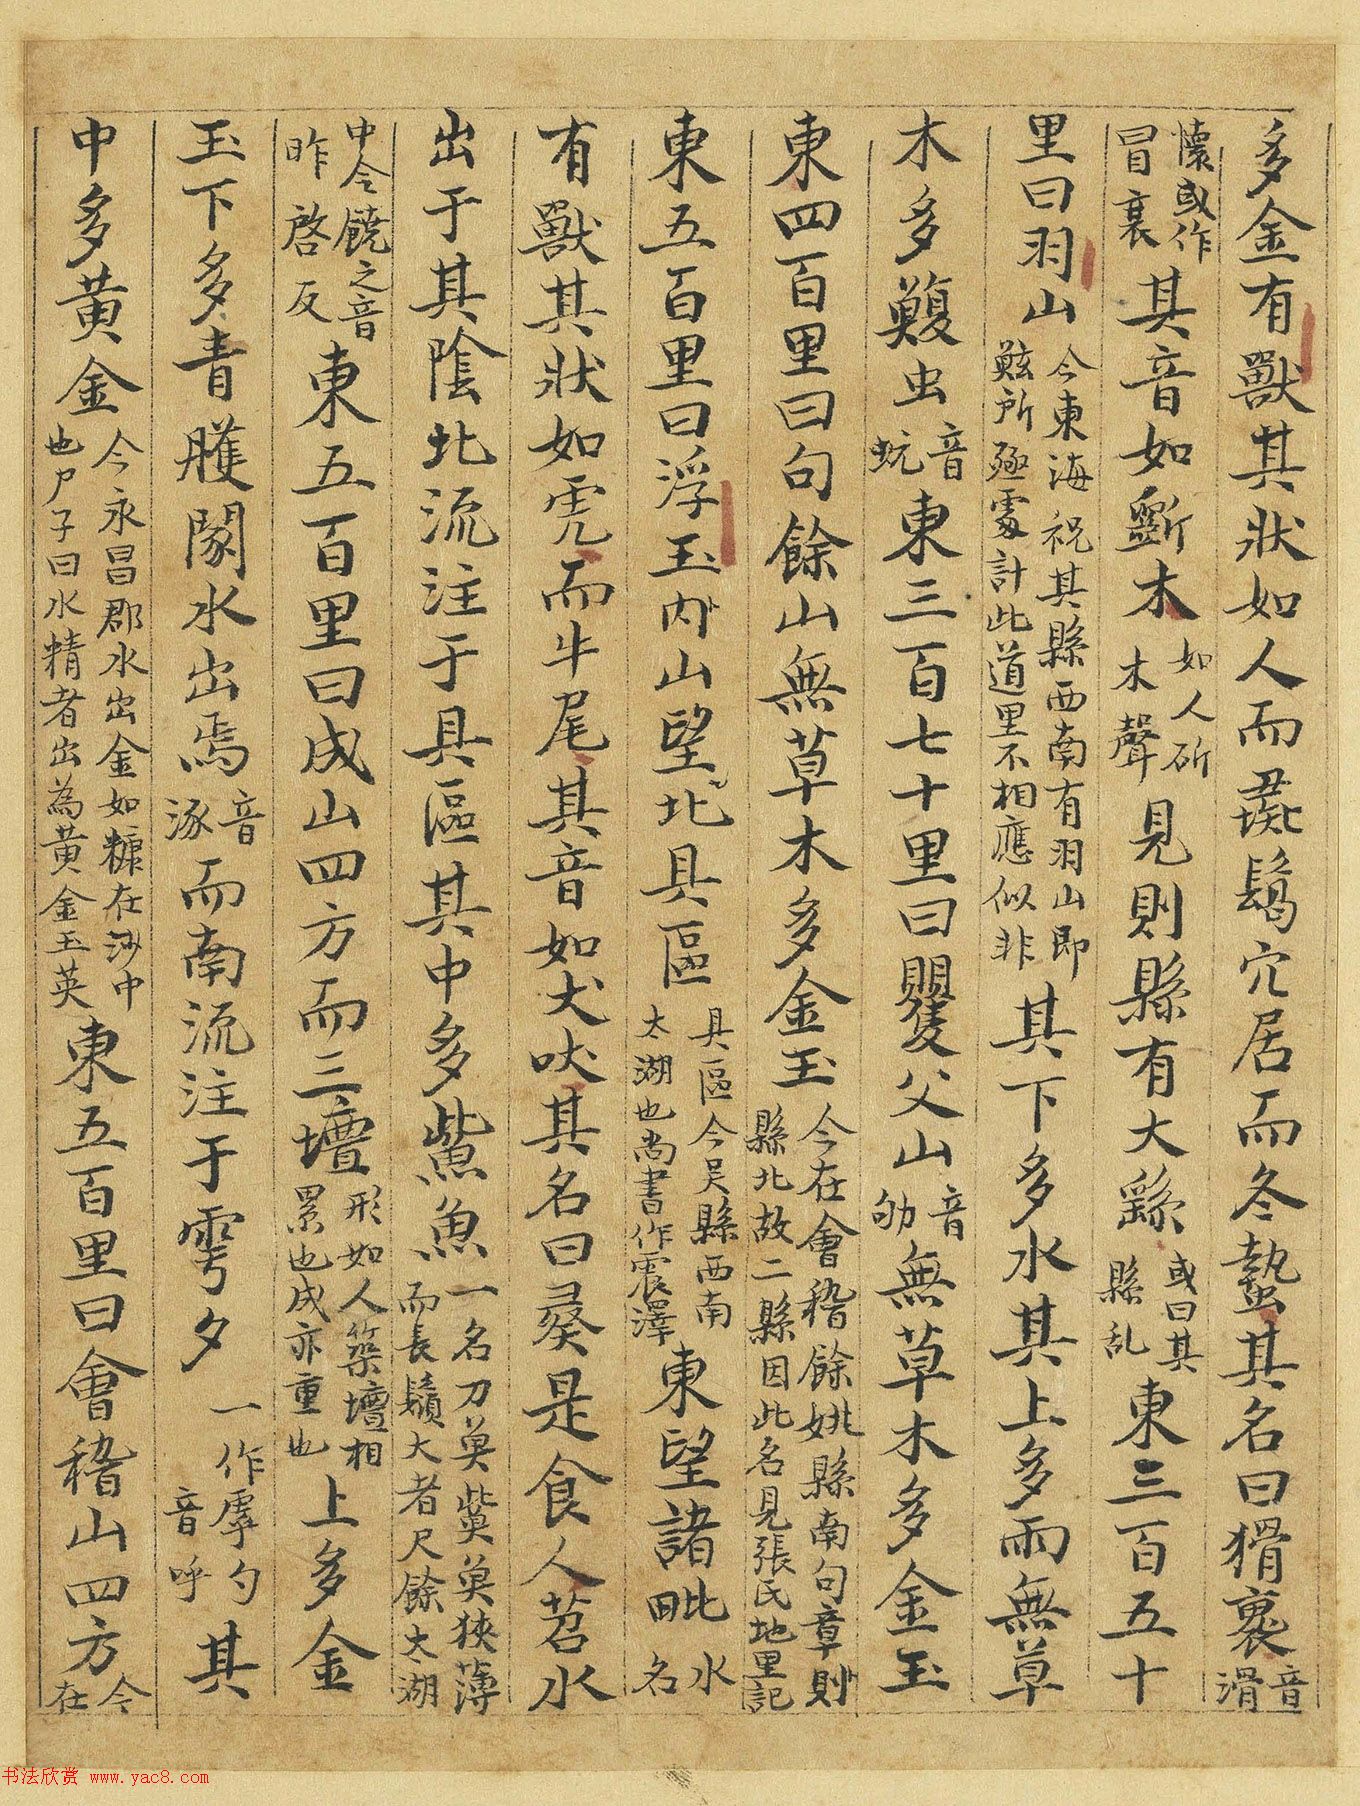 多金有獸其狀如人而彘鬣穴居而冬蟄其名曰猾褢音滑
懷或作冒裏其音如斲木如人斫木聲見則縣有大繇或曰其縣乱東三百五十
里曰羽山今東海祝其縣西南有羽山即鮌所殛處計此道里不相應似非其下多水其上多雨無草
木多蝮虫音蚖東三百七十里曰瞿父山音劬無草木多金玉
東四百里曰句餘山無草木多金玉今在會稽餘姚縣南句章則縣北故二縣因此名見張氏地里記
東五百里曰浮玉内山望北具區具區今吴縣西南太湖也尚書作震澤東望諸毗水名
有獸其狀如虎而牛尾其音如犬吠其名曰彘是食人苕水
出于其陰北流注于具區其中多鮆魚一名刀奠鮆奠狹薄而長鬚大者尺餘太湖
中今饒之音昨啓反東五百里曰成山四方而三壇形如人築壇相累也成亦重也上多金
玉下多青雘閡水出焉音涿而南流注于雩夕一作雽勺音呼其
中多黄金今永昌郡水出金如糠在沙中也尸子曰水精者出為黄金玉英東五百里曰會稽山四方今在
书法欣赏 www.yac8.com